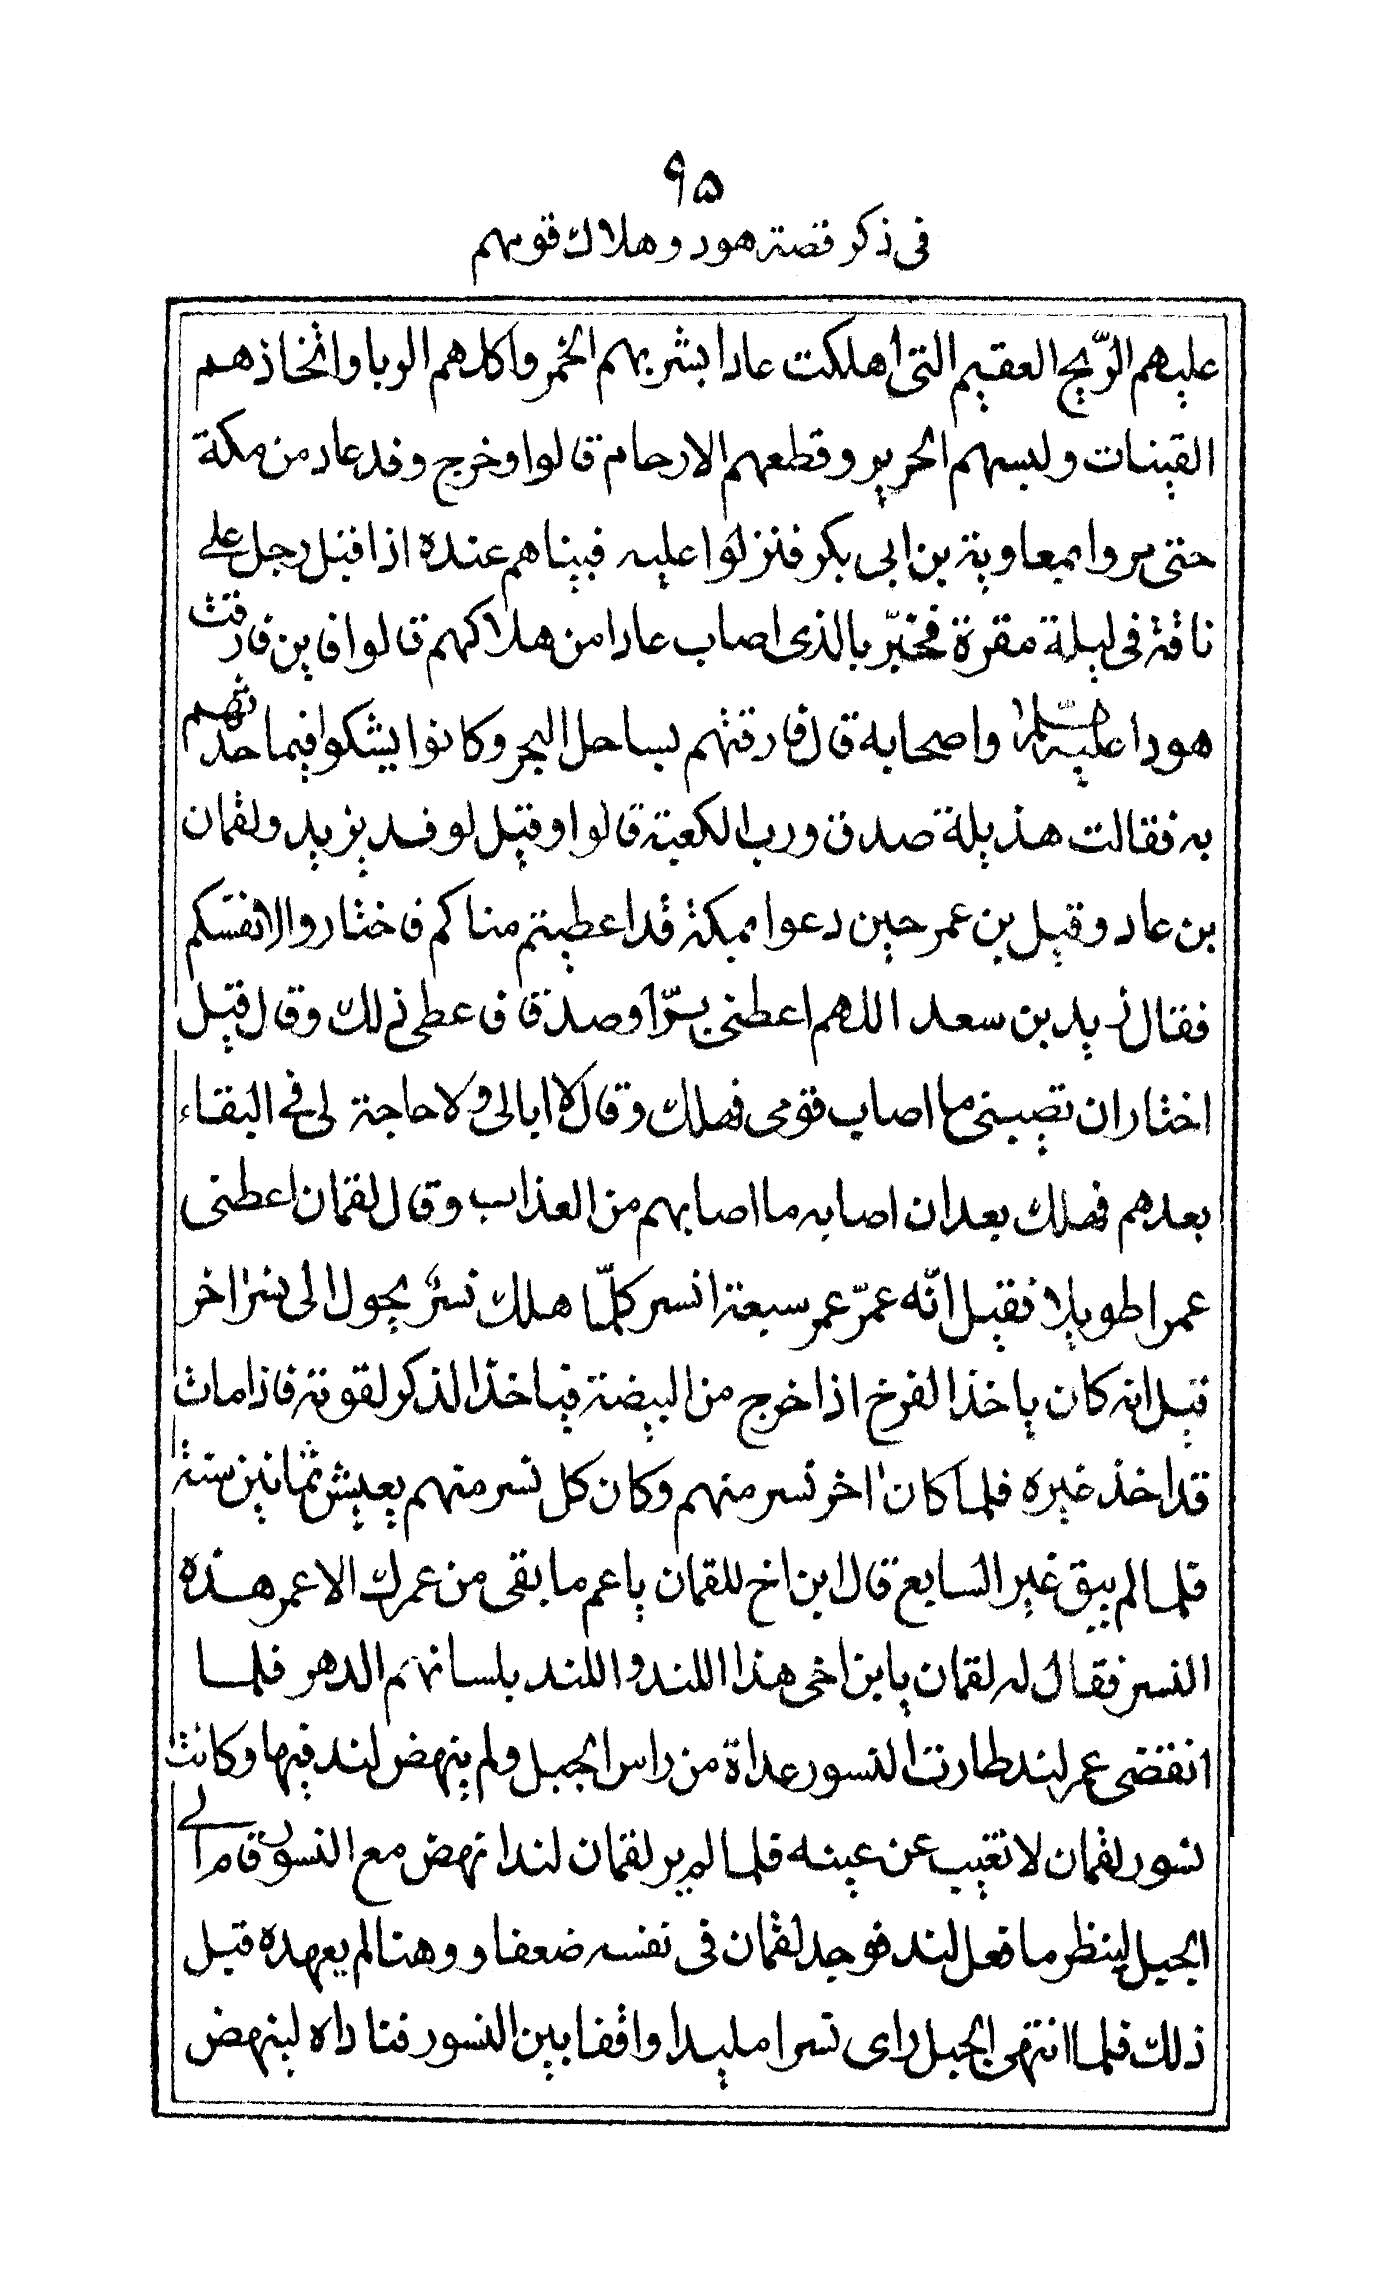 ٩٥
فى ذكر قصة هود وهلاك قومهم
عليهم الرّيح العقيم التى أهلكت عادا بشربهم الخمر واكلهم الربا واتخاذهم
القينات ولبسهم الحرير وقطعهم الارحام قالوا وخرج وفد عاد من مكة
حتى مروا بمعاوية بن ابى بكر فنزلوا عليه فبيناهم عنده اذا قبل رجل على
ناقة فى ليلة مقرة فخبّر بالذى اصاب عادا من هلاكهم قالوا فاين فارقت
هودا عليه السلام واصحابه قال فارقتهم بساحل البحر وكانوا يشكوا فيما حدثهم
به فقالت هذيلة صدق ورب الكعبة قالوا وقيل لوفد يزيد ولقمان
بن عاد وقيل بن عمر حين دعوا بمكة قد اعطيتم مناكم فاختاروا لانفسكم
فقال زيد بن سعد اللهم اعطنى برّا وصدقا فاعطى ذلك وقال قيل
اختار ان تصيبنى ما اصاب قومى فهلك وقال لا ابالى ولا حاجة لى فى البقاء
بعدهم فهلك بعد ان اصابه ما اصابهم من العذاب وقال لقمان اعطنى
عمرا طويلا فقيل انّه عمّر عمر سبعة انسر كلّما هلك نسرٌ يحول الى نسر اخر
قيل انه كان ياخذ الفرخ اذا خرج من البيضة فياخذ الذكر لقوته فاذا مات
قد اخذ غيره فلما كان اخر نسر منهم وكان كل نسر منهم يعيش ثمانين سنة
فلما لم يبق غير السابع قال ابن اخ للقمان ياعم ما بقى من عمرك الا عمر هذه
النسر فقال له لقمان يابن اخى هذا اللندو اللند بلسانهم الدهر فلما
انقضى عمر لند طارت النسور عداة من راس الجبل ولم ينهض لند فيها وكانت
نسور لقمان لا تغيب عن عينه فلما لم ير لقمان لندا نهض مع النسور قام الى
الجبل لينظر ما فعل لند فوجد لقمان فى نفسه ضعفا ووهنا لم يعهده قبل
ذلك فلما انتهى الجبل راى نسرا ملبدا واقفا بين النسور فناداه لينهض